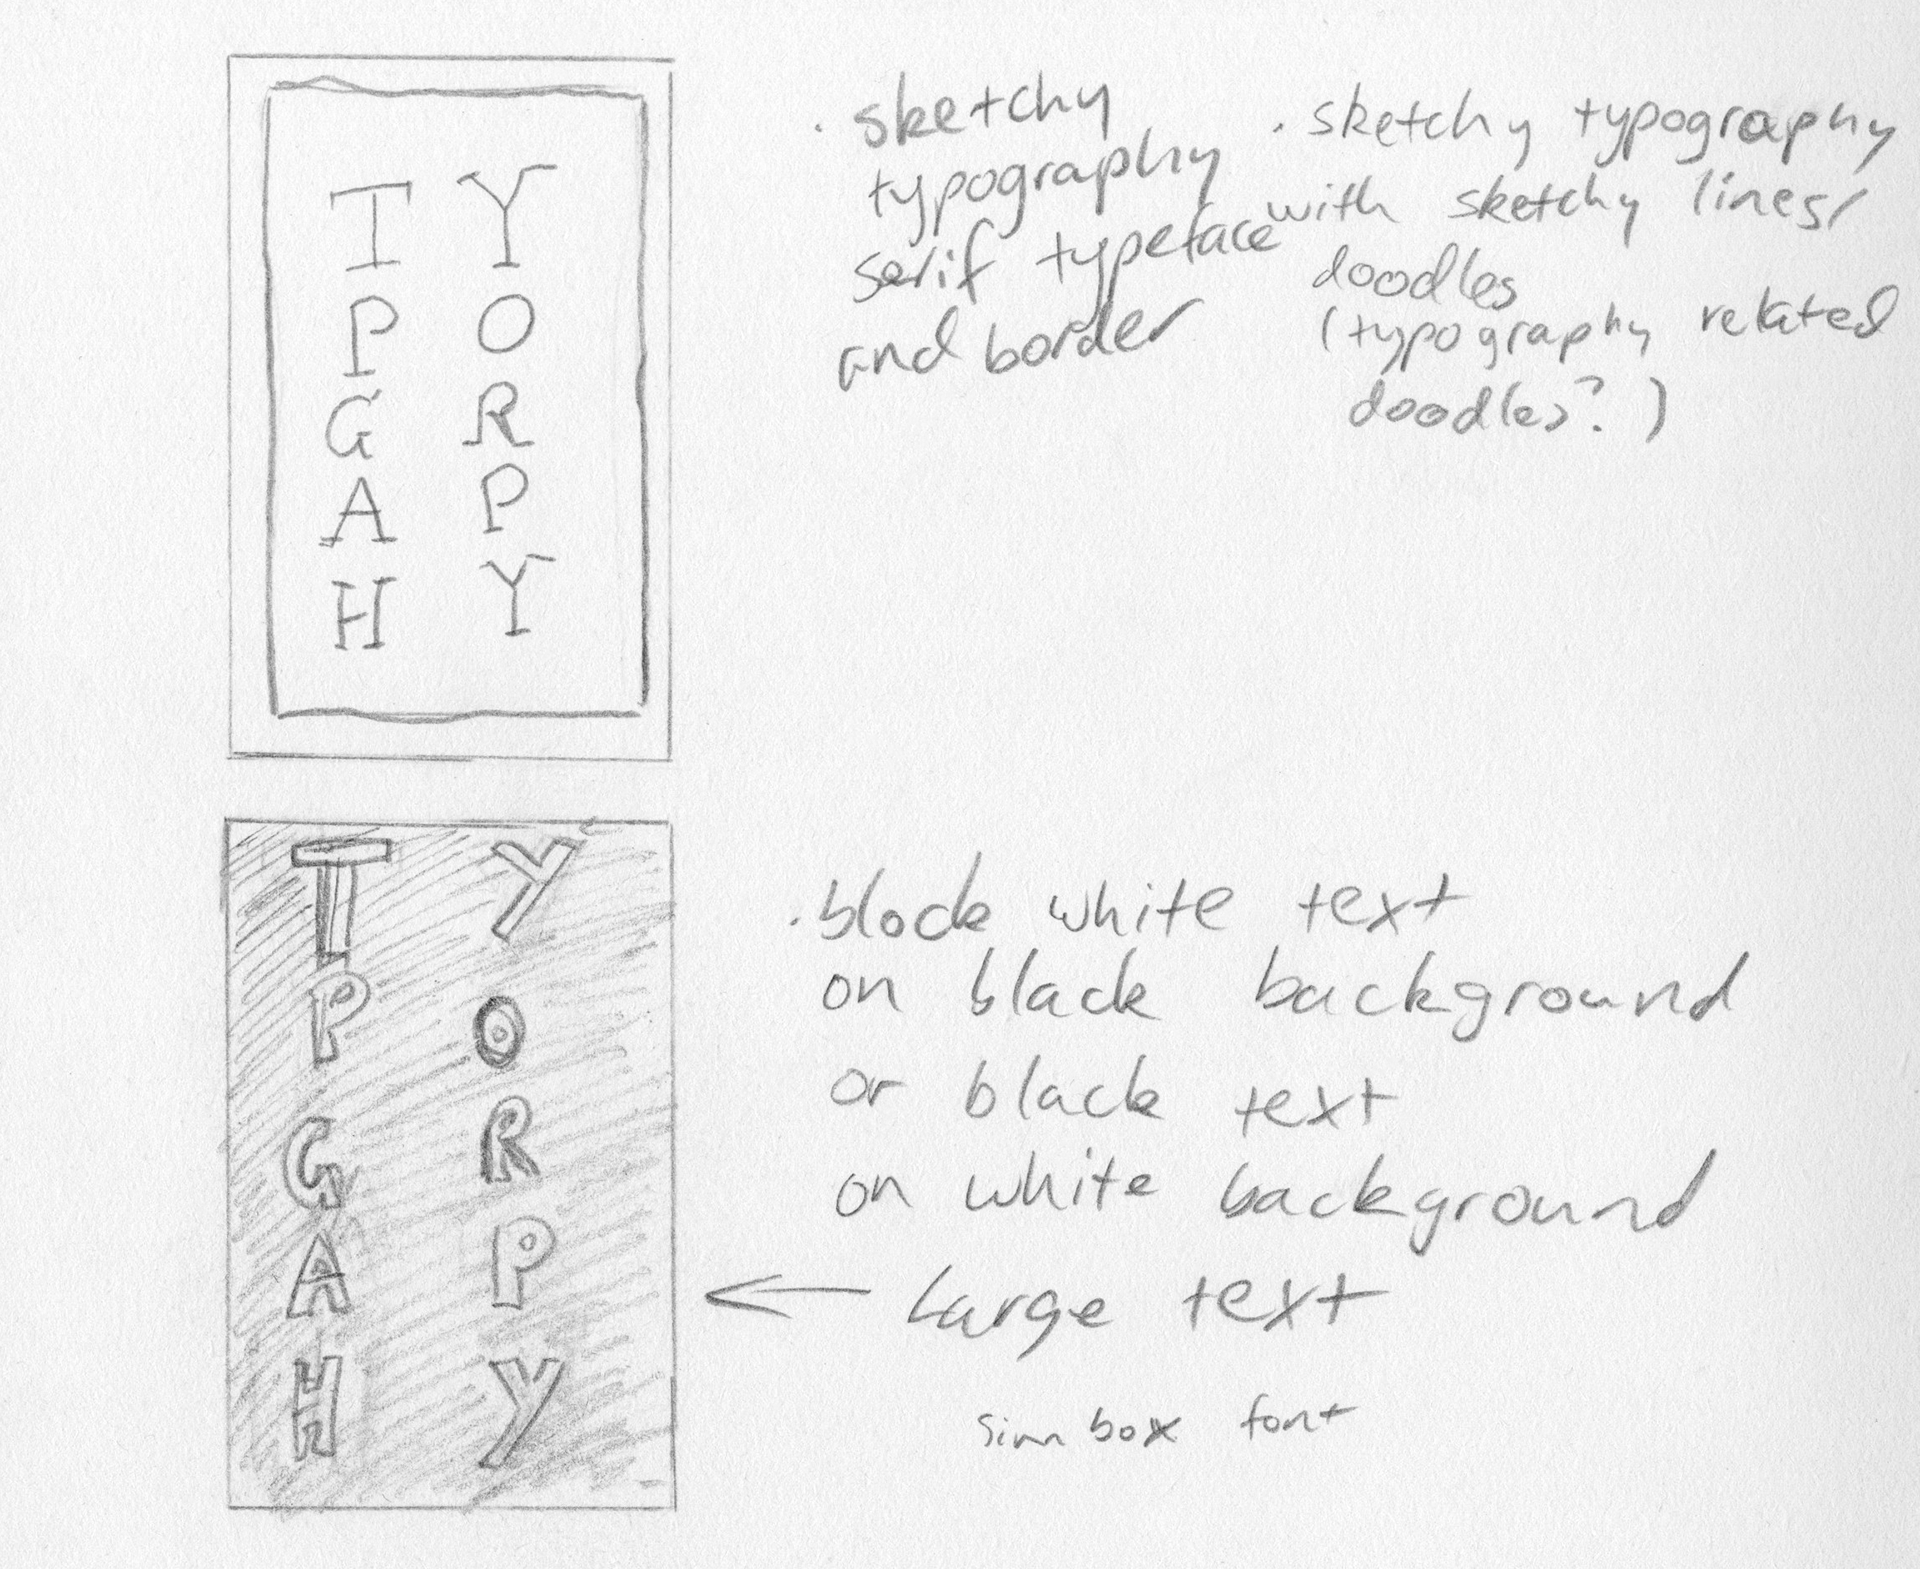 T Y
P O
G R
A P
H Y
· sketchy
typography
serif typeface
and border
· sketchy typography
with sketchy lines/
doodles
(typography related
doodles?)
T Y
P O
G R
A P
H Y
· block white text
on black background
or black text
on white background
← Large text
box font